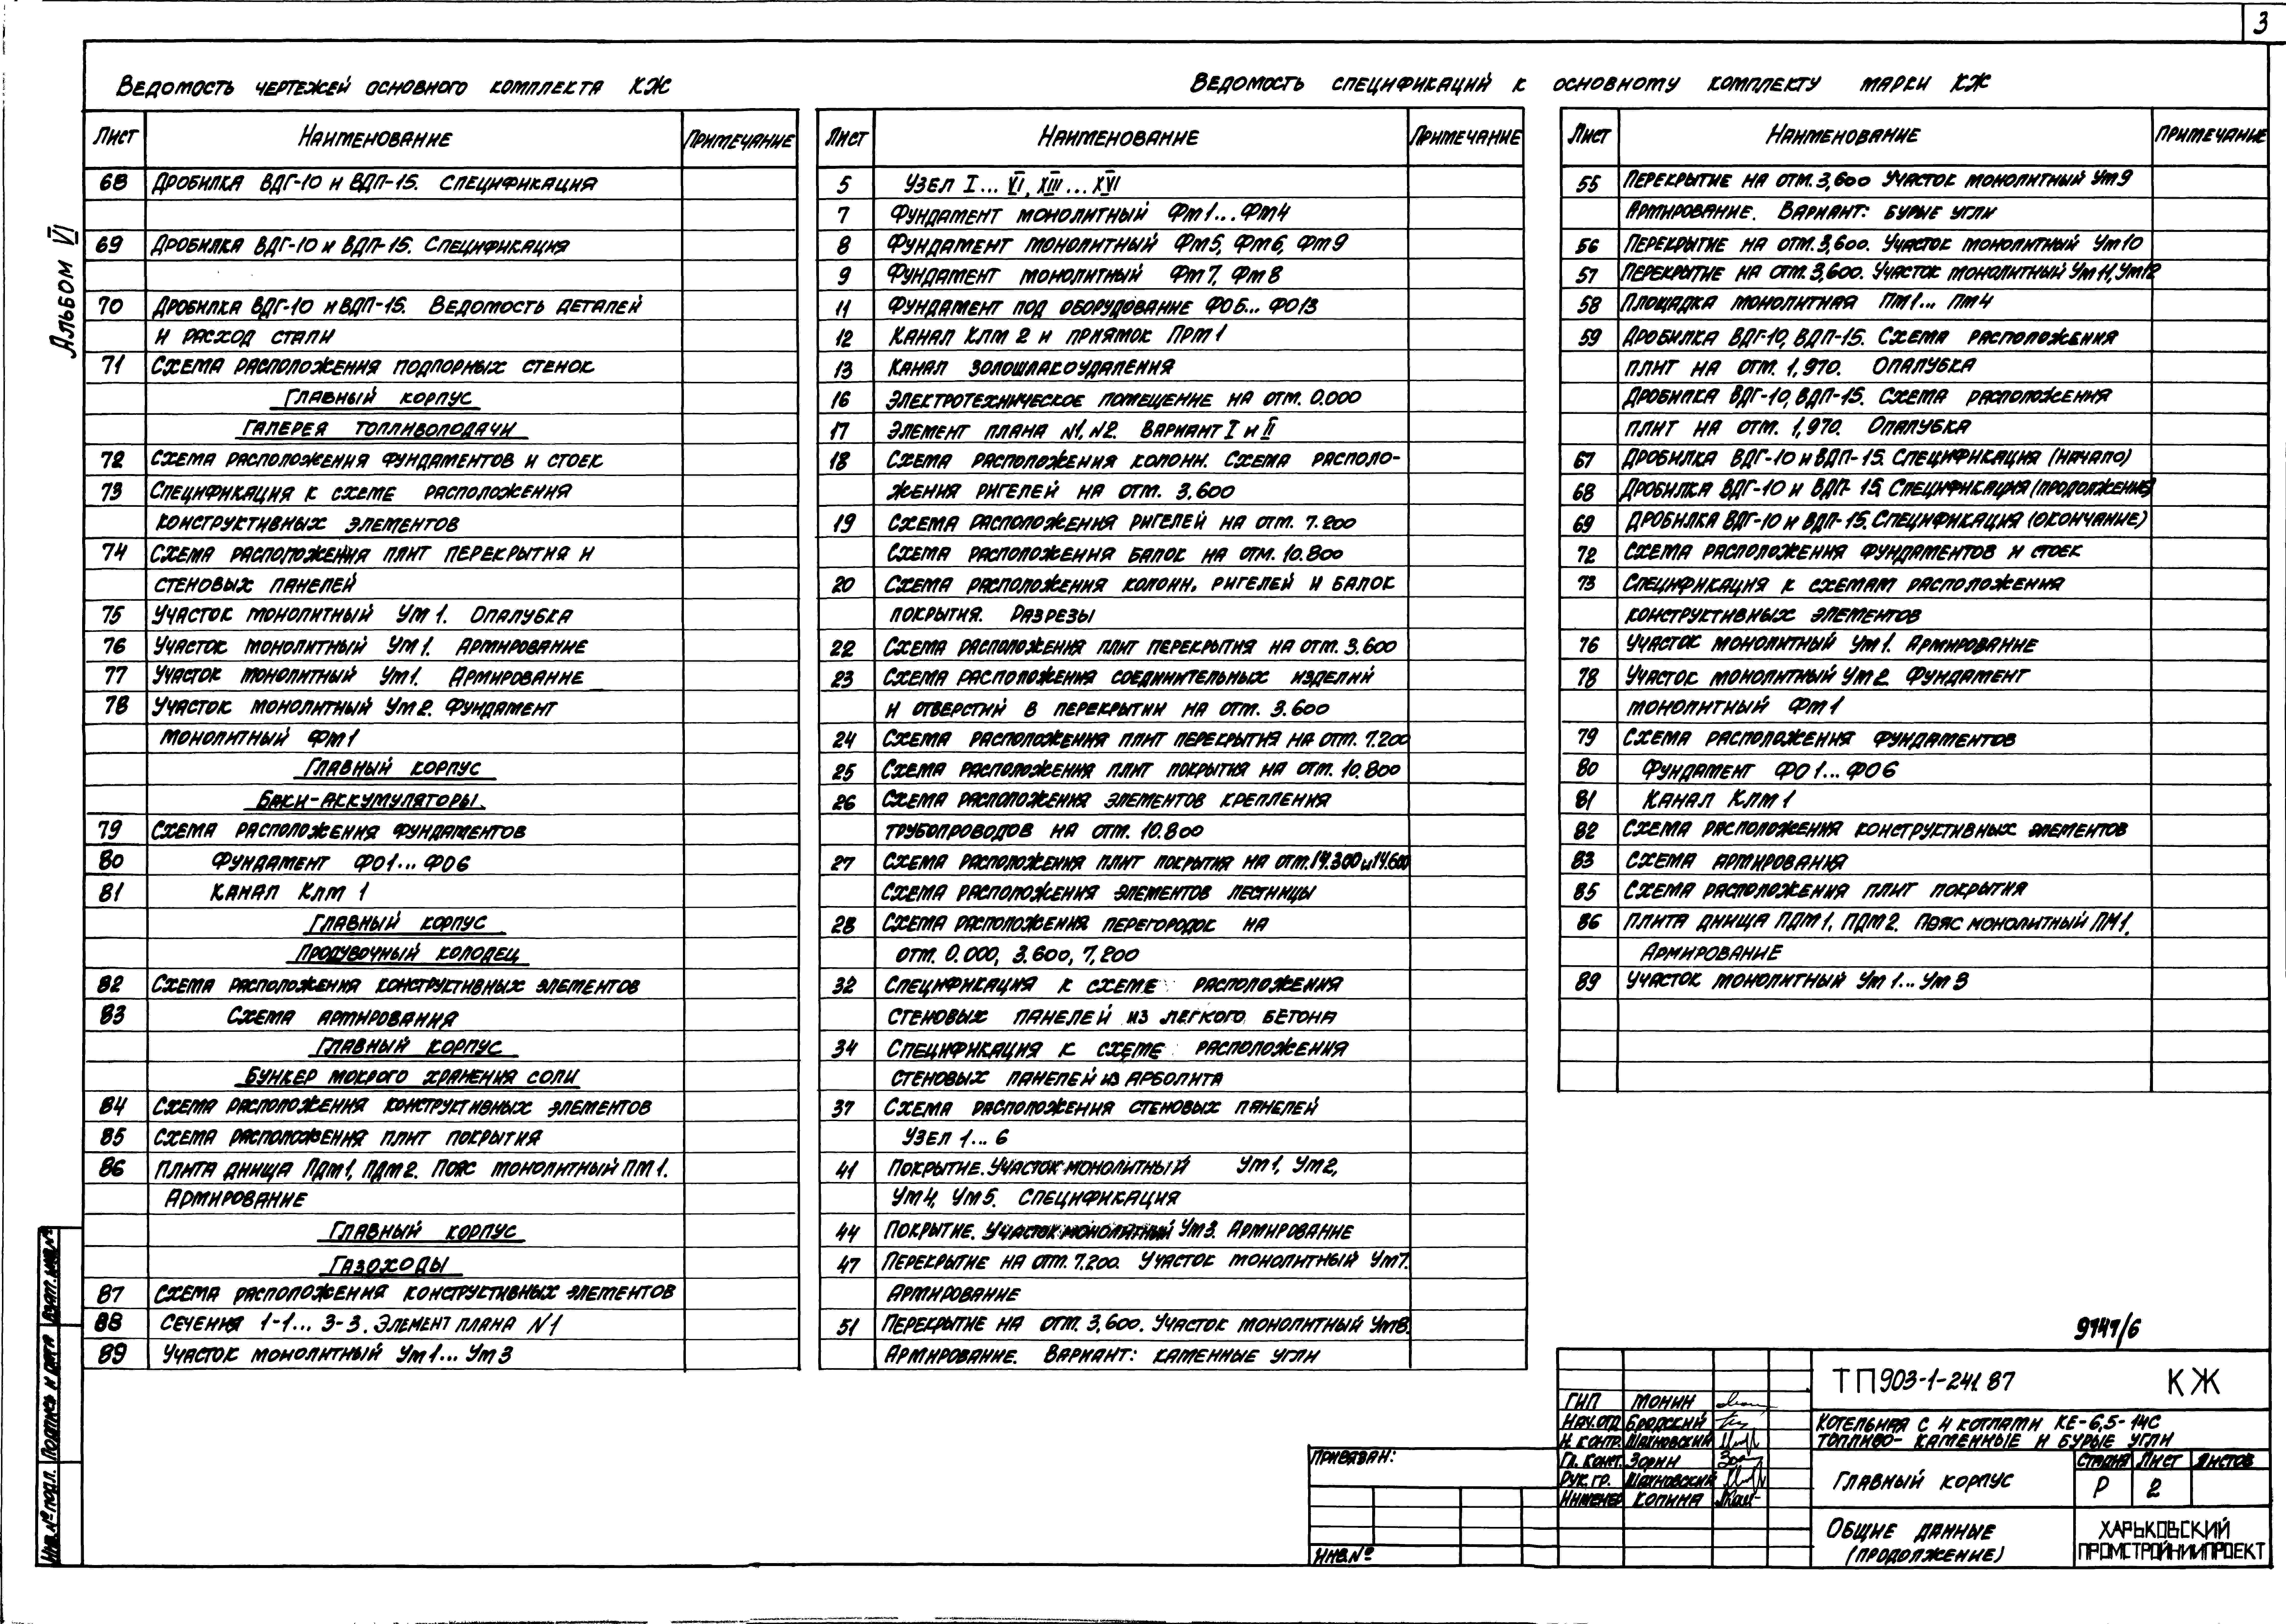 3
Альбом VI
Ведомость чертежей основного комплекта КЖ
Лист Наименование Примечание
68 Дробилка ВДГ-10 и ВДП-15. Спецификация
69 Дробилка ВДГ-10 и ВДП-15. Спецификация
70 Дробилка ВДГ-10 и ВДП-15. Ведомость деталей
и расход стали
71 Схема расположения подпорных стенок
Главный корпус
Галерея топливоподачи
72 Схема расположения фундаментов и стоек
73 Спецификация к схеме расположения
конструктивных элементов
74 Схема расположения плит перекрытия и
стеновых панелей
75 Участок монолитный Ум 1. Опалубка
76 Участок монолитный Ум 1. Армирование
77 Участок монолитный Ум1. Армирование
78 Участок монолитный Ум2. Фундамент
монолитный Фм1
Главный корпус
Баки-аккумуляторы.
79 Схема расположения фундаментов
80 Фундамент ФО1...ФО6
81 Канал Клм 1
Главный корпус
Продувочный колодец
82 Схема расположения конструктивных элементов
83 Схема армирования
Главный корпус
Бункер мокрого хранения соли
84 Схема расположения конструктивных элементов
85 Схема расположения плит покрытия
86 Плита днища ПДм1, ПДм2. Пояс монолитный ПМ1.
Армирование
Главный корпус
Газоходы
87 Схема расположения конструктивных элементов
88 Сечения 1-1... 3-3. Элемент плана N1
89 Участок монолитный Ум1... Ум3
Ведомость спецификаций к основному комплекту марки КЖ
Лист Наименование Примечание
5 Узел I... VI, XIII... XVI
7 Фундамент монолитный Фм1...Фм4
8 Фундамент монолитный Фм5, Фм6, Фм9
9 Фундамент монолитный Фм7, Фм8
11 Фундамент под оборудование ФО5... ФО13
12 Канал Клм 2 и приямок Прм 1
13 Канал золошлакоудаления
16 Электротехническое помещение на отм. 0.000
17 Элемент плана N1, N2. Вариант I и II
18 Схема расположения колонн. Схема располо-
жения ригелей на отм. 3.600
19 Схема расположения ригелей на отм. 7.200
Схема расположения балок на отм. 10.800
20 Схема расположения колонн, ригелей и балок
покрытия. Разрезы
22 Схема расположения плит перекрытия на отм. 3.600
23 Схема расположения соединительных изделий
и отверстий в перекрытии на отм. 3.600
24 Схема расположения плит перекрытия на отм. 7.200
25 Схема расположения плит покрытия на отм. 10.800
26 Схема расположения элементов крепления
трубопроводов на отм. 10.800
27 Схема расположения плит покрытия на отм.14.300 и 14.600
Схема расположения элементов лестницы
28 Схема расположения перегородок на
отм. 0.000, 3.600, 7,200
32 Спецификация к схеме расположения
стеновых панелей из легкого бетона
34 Спецификация к схеме расположения
стеновых панелей из арболита
37 Схема расположения стеновых панелей
Узел 1... 6
41 Покрытие. Участок монолитный Ум1, Ум2,
Ум4, Ум5. Спецификация
44 Покрытие. Участок монолитный Ум3. Армирование
47 Перекрытие на отм. 7.200. Участок монолитный Ум7.
Армирование
51 Перекрытие на отм. 3,600. Участок монолитный Ум8.
Армирование. Вариант: каменные угли
Лист Наименование Примечание
55 Перекрытие на отм. 3,600 Участок монолитный Ум9
Армирование. Вариант: бурые угли
56 Перекрытие на отм. 3,600. Участок монолитный Ум10
57 Перекрытие на отм. 3,600. Участок монолитный Ум11, Ум12
58 Площадка монолитная Пм1... Пм4
59 Дробилка ВДГ-10, ВДП-15. Схема расположения
плит на отм. 1,970. Опалубка
Дробилка ВДГ-10, ВДП-15. Схема расположения
плит на отм. 1,970. Опалубка
67 Дробилка ВДГ-10 и ВДП-15. Спецификация (начало)
68 Дробилка ВДГ-10 и ВДП-15. Спецификация (продолжение)
69 Дробилка ВДГ-10 и ВДП-15. Спецификация (окончание)
72 Схема расположения фундаментов и стоек
73 Спецификация к схемам расположения
конструктивных элементов
76 Участок монолитный Ум1. Армирование
78 Участок монолитный Ум2. Фундамент
монолитный Фм1
79 Схема расположения фундаментов
80 Фундамент ФО1...ФО6
81 Канал Клм1
82 Схема расположения конструктивных элементов
83 Схема армирования
85 Схема расположения плит покрытия
86 Плита днища ПДм1, ПДм2. Пояс монолитный ПМ1.
Армирование
89 Участок монолитный Ум1... Ум3
9747/6
ТП903-1-241.87 КЖ
ГИП Монин
Нач.отд Бродский
Н. контр. Шахновский
Гл. конст. Зорин
Рук. гр. Шахновский
Инженер Копина
Котельная с 4 котлами КЕ-6,5-14С
Топливо- каменные и бурые угли
Главный корпус
Стадия Лист Листов
Р 2
Общие данные
(продолжение)
ХАРЬКОВСКИЙ
ПРОМСТРОЙНИИПРОЕКТ
Привязан:
Инв.№
Инв.№ подл. Подпись и дата Взам. инв.№